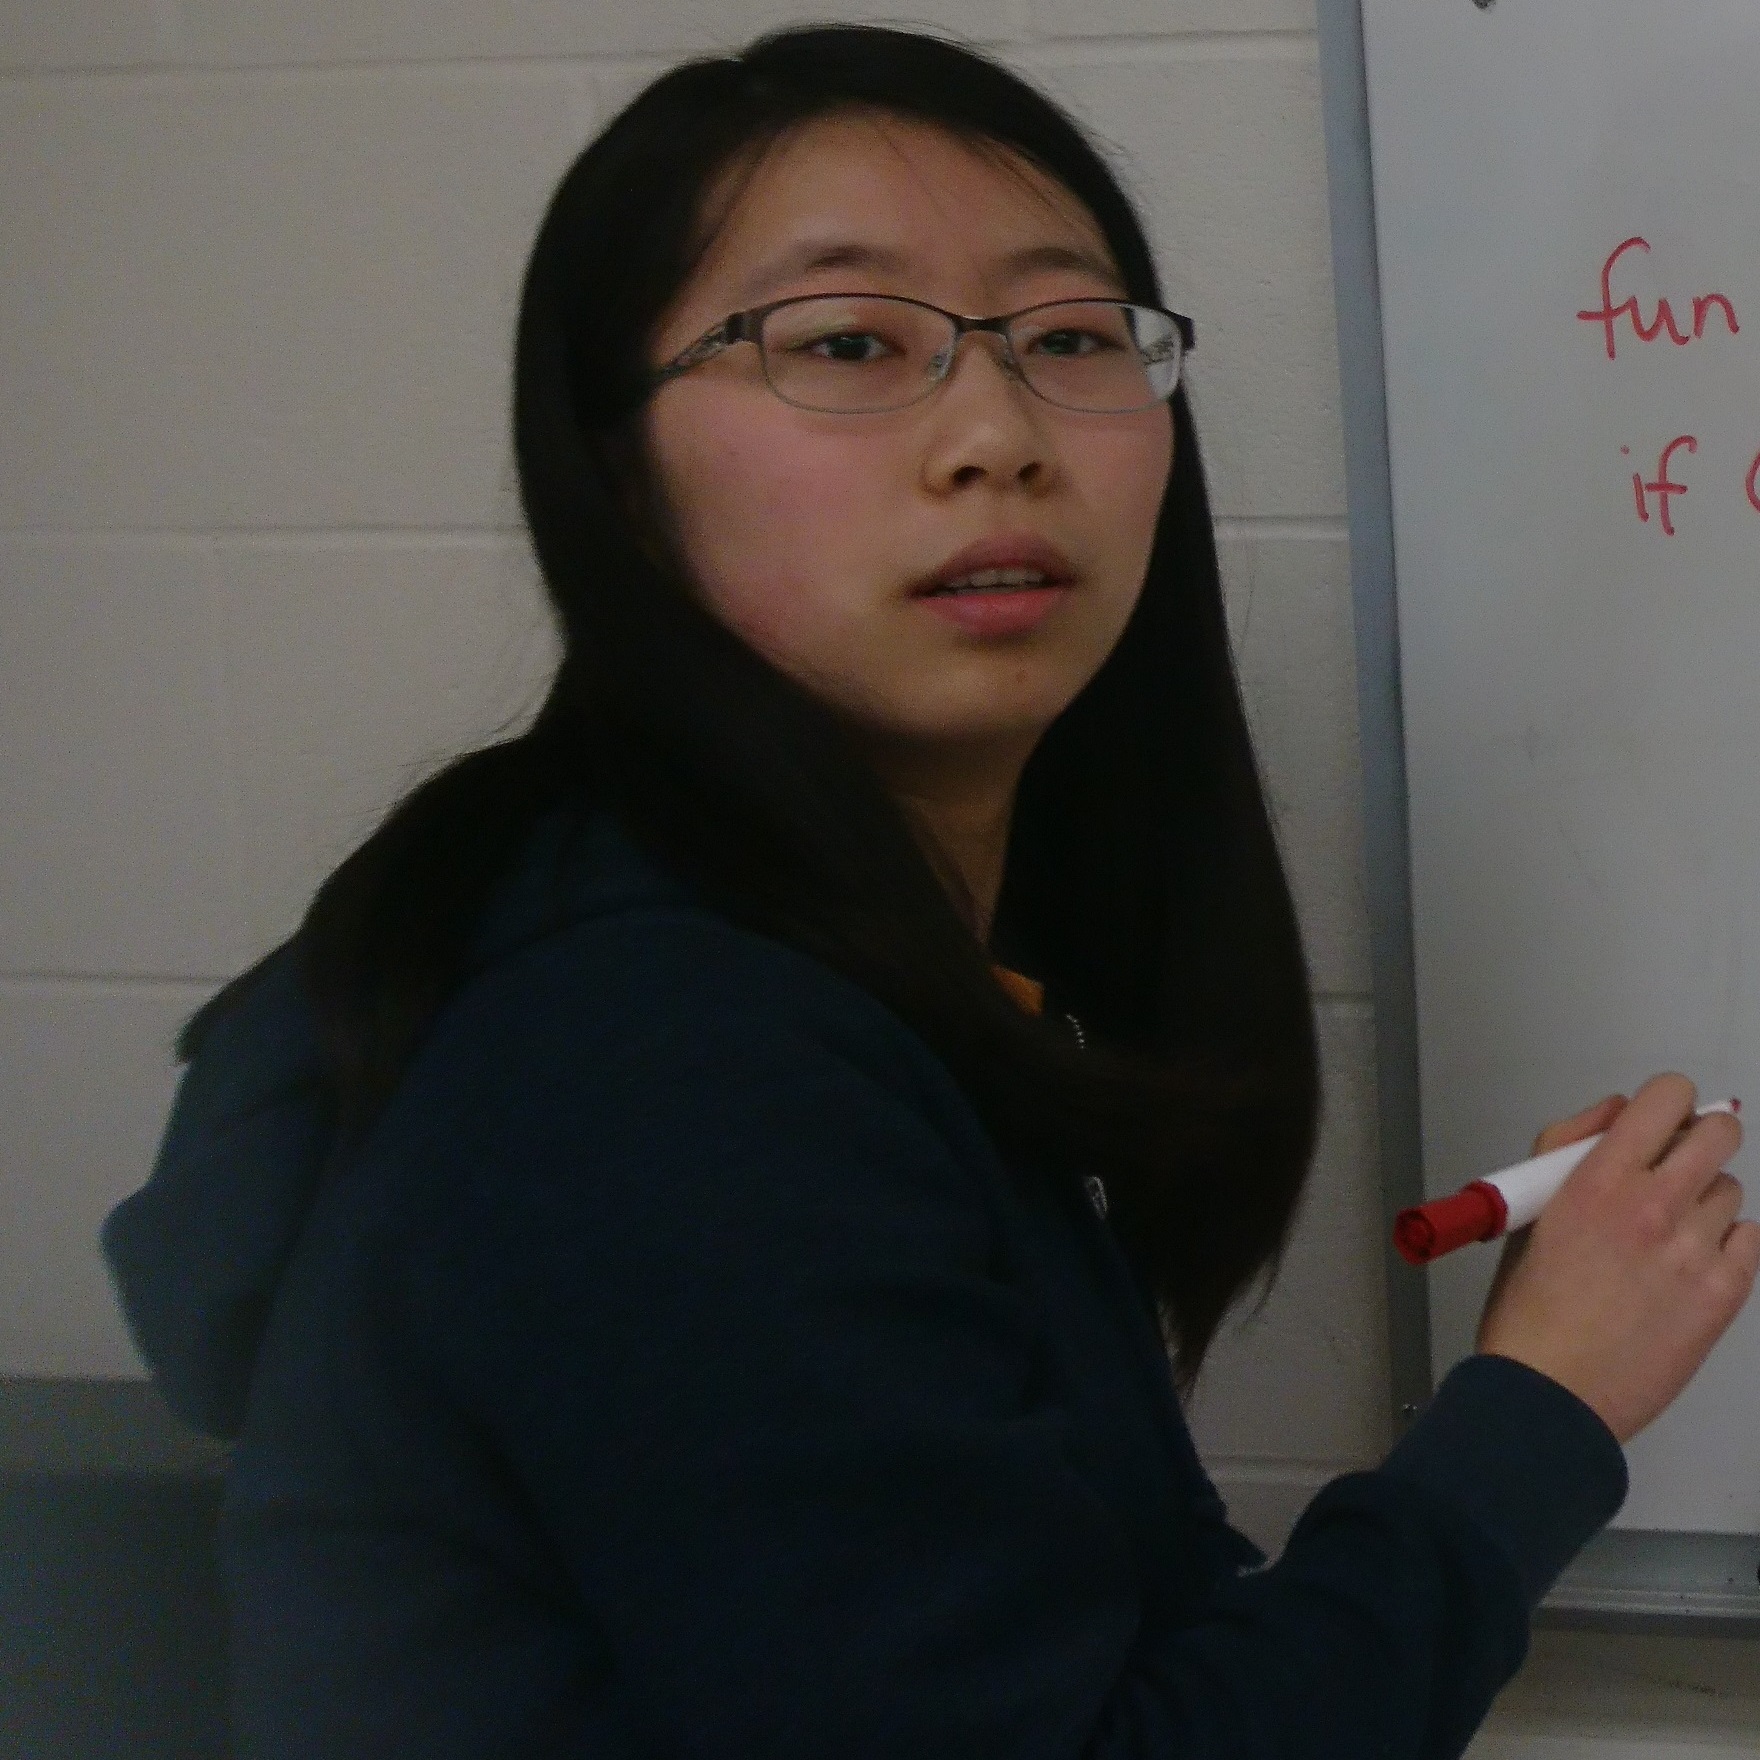 fun
if (